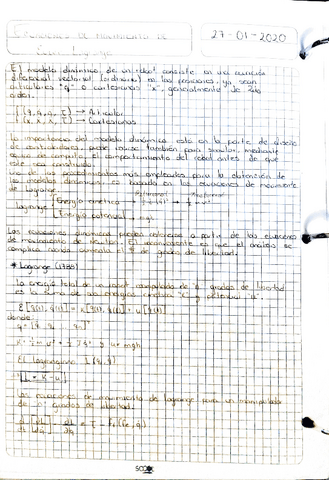 ECUACIONES DE MOVIMIENTO DE
Euler Lagrange
27-01-2020
El modelo dinámico de un robot consiste en una ecuación
diferencial vectorial (ordinaria) en las posiciones, ya sean
articulares "q" o cartesianas "x", generalmente de 2do
orden.
f(q, q̇, q̈, τ) → Articular
f(x, ẋ, ẍ, τ) → Cartesianas
La importancia del modelo dinámico está en la parte de diseño
de controladores, pero también para simular, mediante
equipo de computo, el comportamiento del robot antes de que
este sea construido.
Uno de los procedimientos más empleados para la obtención de
los modelos dinámicos, es basado en las ecuaciones de movimiento
de Lagrange.
Lagrange Energía cinética
Energía potencial → mgh
Las ecuaciones dinámicas pueden obtenerse a partir de las ecuaciones
de movimiento de Newton. El inconveniente es que el análisis se
complica cuando aumenta el # de grados de libertad.
* Lagrange (1788)
La energía total de un robot manipulador de "n" grados de libertad
es la suma de sus energías cinética "K" y potencial "u".
E[q(t), q̇(t)] = K[q(t), q̇(t)] + u[q(t)]
donde:
K = ½ m v² + ½ J q̇² y u = mgh
El lagrangiano L(q, q̇)
L = K - u
Las ecuaciones de movimiento de Lagrange para un manipulador
de "n" grados de libertad: